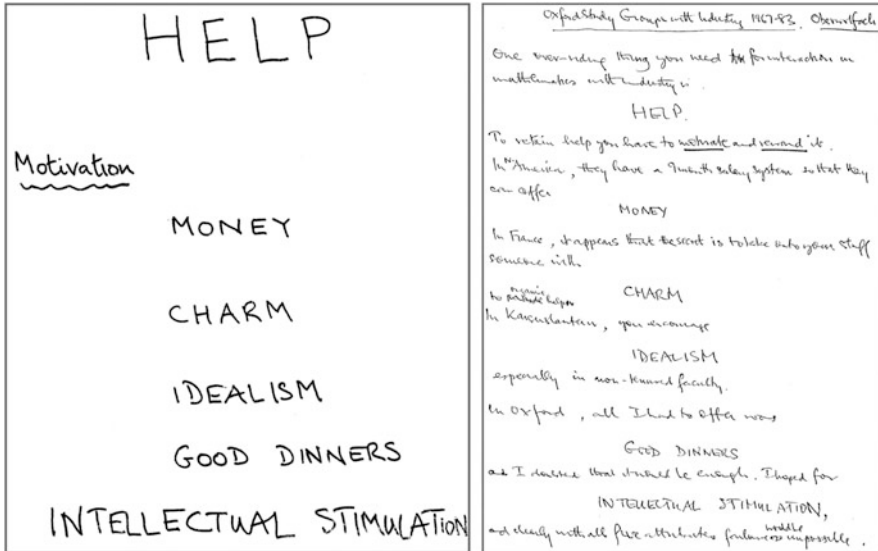 HELP
Motivation
MONEY
CHARM
IDEALISM
GOOD DINNERS
INTELLECTUAL STIMULATION
Oxford Study Groups with Industry 1967-83. Oberwolfach
One over-riding thing you need for interaction in
mathematics with industry is
HELP.
To retain help you have to motivate and reward it.
In N. America, they have a 9 month salary system so that they
can offer
MONEY
In France, it appears that the secret is to take onto your staff
someone with
CHARM
to organise helpers
In Kaiserslautern, you encourage
IDEALISM
especially in non-tenured faculty.
In Oxford, all I had to offer was
GOOD DINNERS
and I doubted that it would be enough. I hoped for
INTELLECTUAL STIMULATION,
and clearly with all five attributes failure would be impossible.